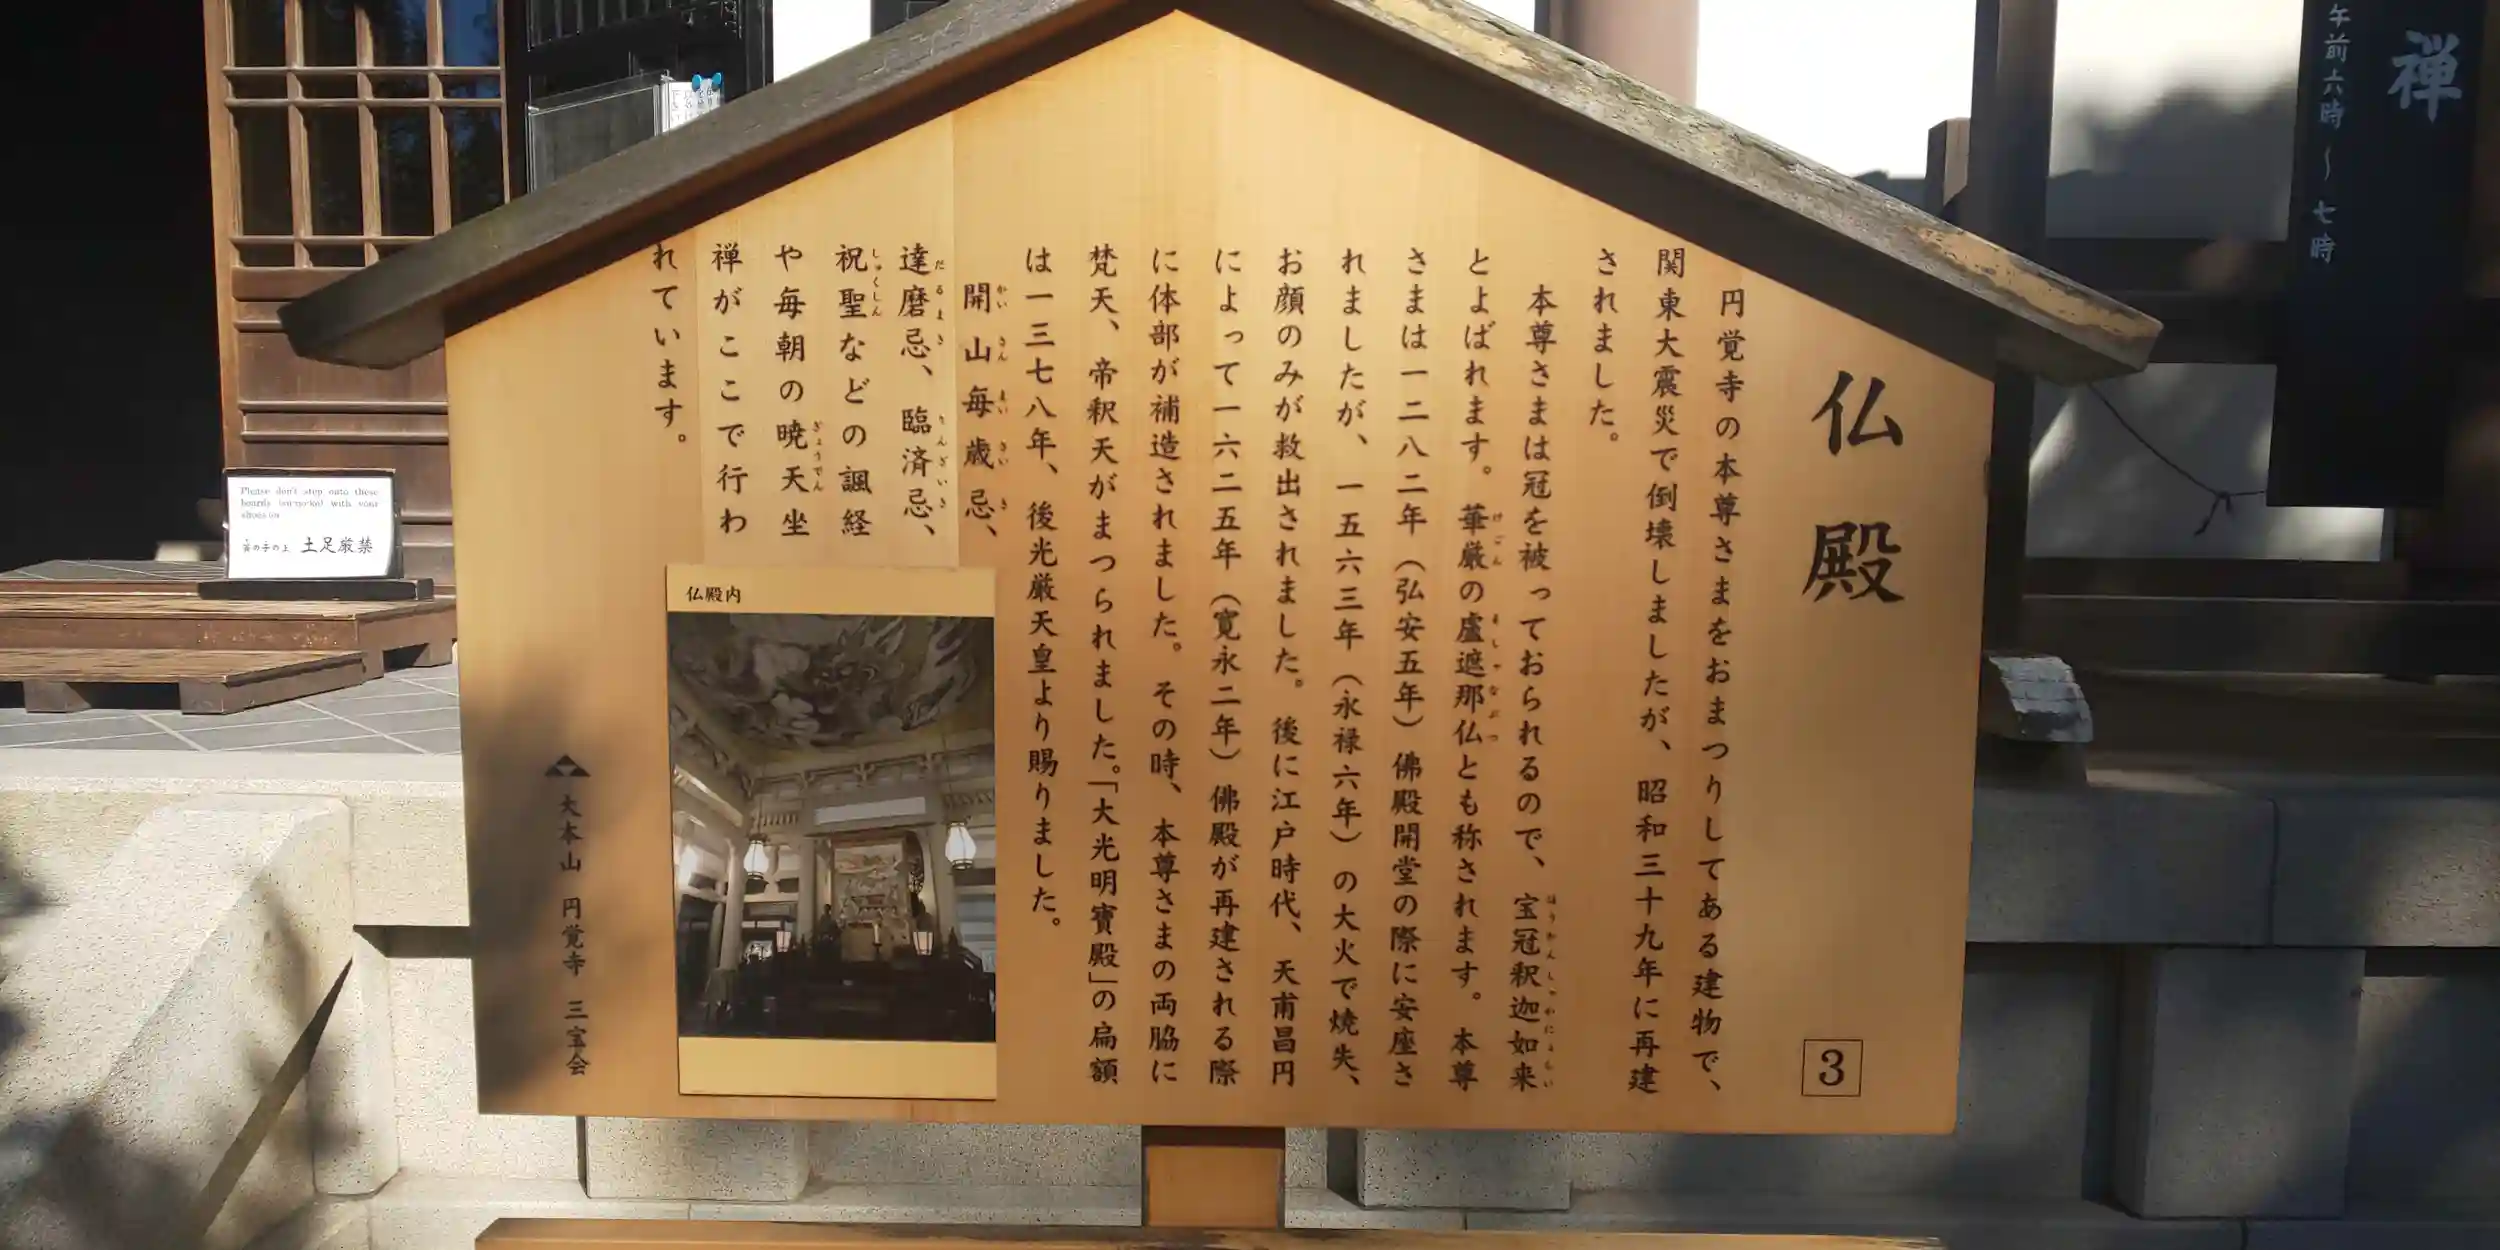 仏殿
3
円覚寺の本尊さまをおまつりしてある建物で、
関東大震災で倒壊しましたが、昭和三十九年に再建
されました。
本尊さまは冠を被っておられるので、宝冠釈迦如来
ほうかんしゃかにょらい
とよばれます。華厳の盧遮那仏とも称されます。本尊
けごん
るしゃなぶつ
さまは一二八二年（弘安五年）佛殿開堂の際に安座さ
れましたが、一五六三年（永禄六年）の大火で焼失、
お顔のみが救出されました。後に江戸時代、天甫昌円
によって一六二五年（寛永二年）佛殿が再建される際
に体部が補造されました。その時、本尊さまの両脇に
梵天、帝釈天がまつられました。「大光明寳殿」の扁額
は一三七八年、後光厳天皇より賜りました。
開山毎歳忌、
かいさんまいさいき
達磨忌、臨済忌、
だるまき
りんざいき
祝聖などの諷経
しゅくしん
や毎朝の暁天坐
ぎょうてん
禅がここで行わ
れています。
仏殿内
大本山 円覚寺 三宝会
禅
午前六時～七時
Please don't step onto these
boards (sunoko) with your
shoes on
簀の子の上 土足厳禁